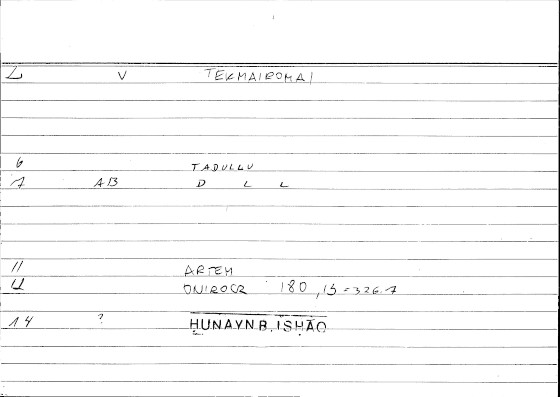 L V TEKMAIROMAI
6 TADULLU
7 AB D L L
11 ARTEM
12 ONIROCR 180,15=326.7
14 ? ḤUNAYN B. ISḤĀQ